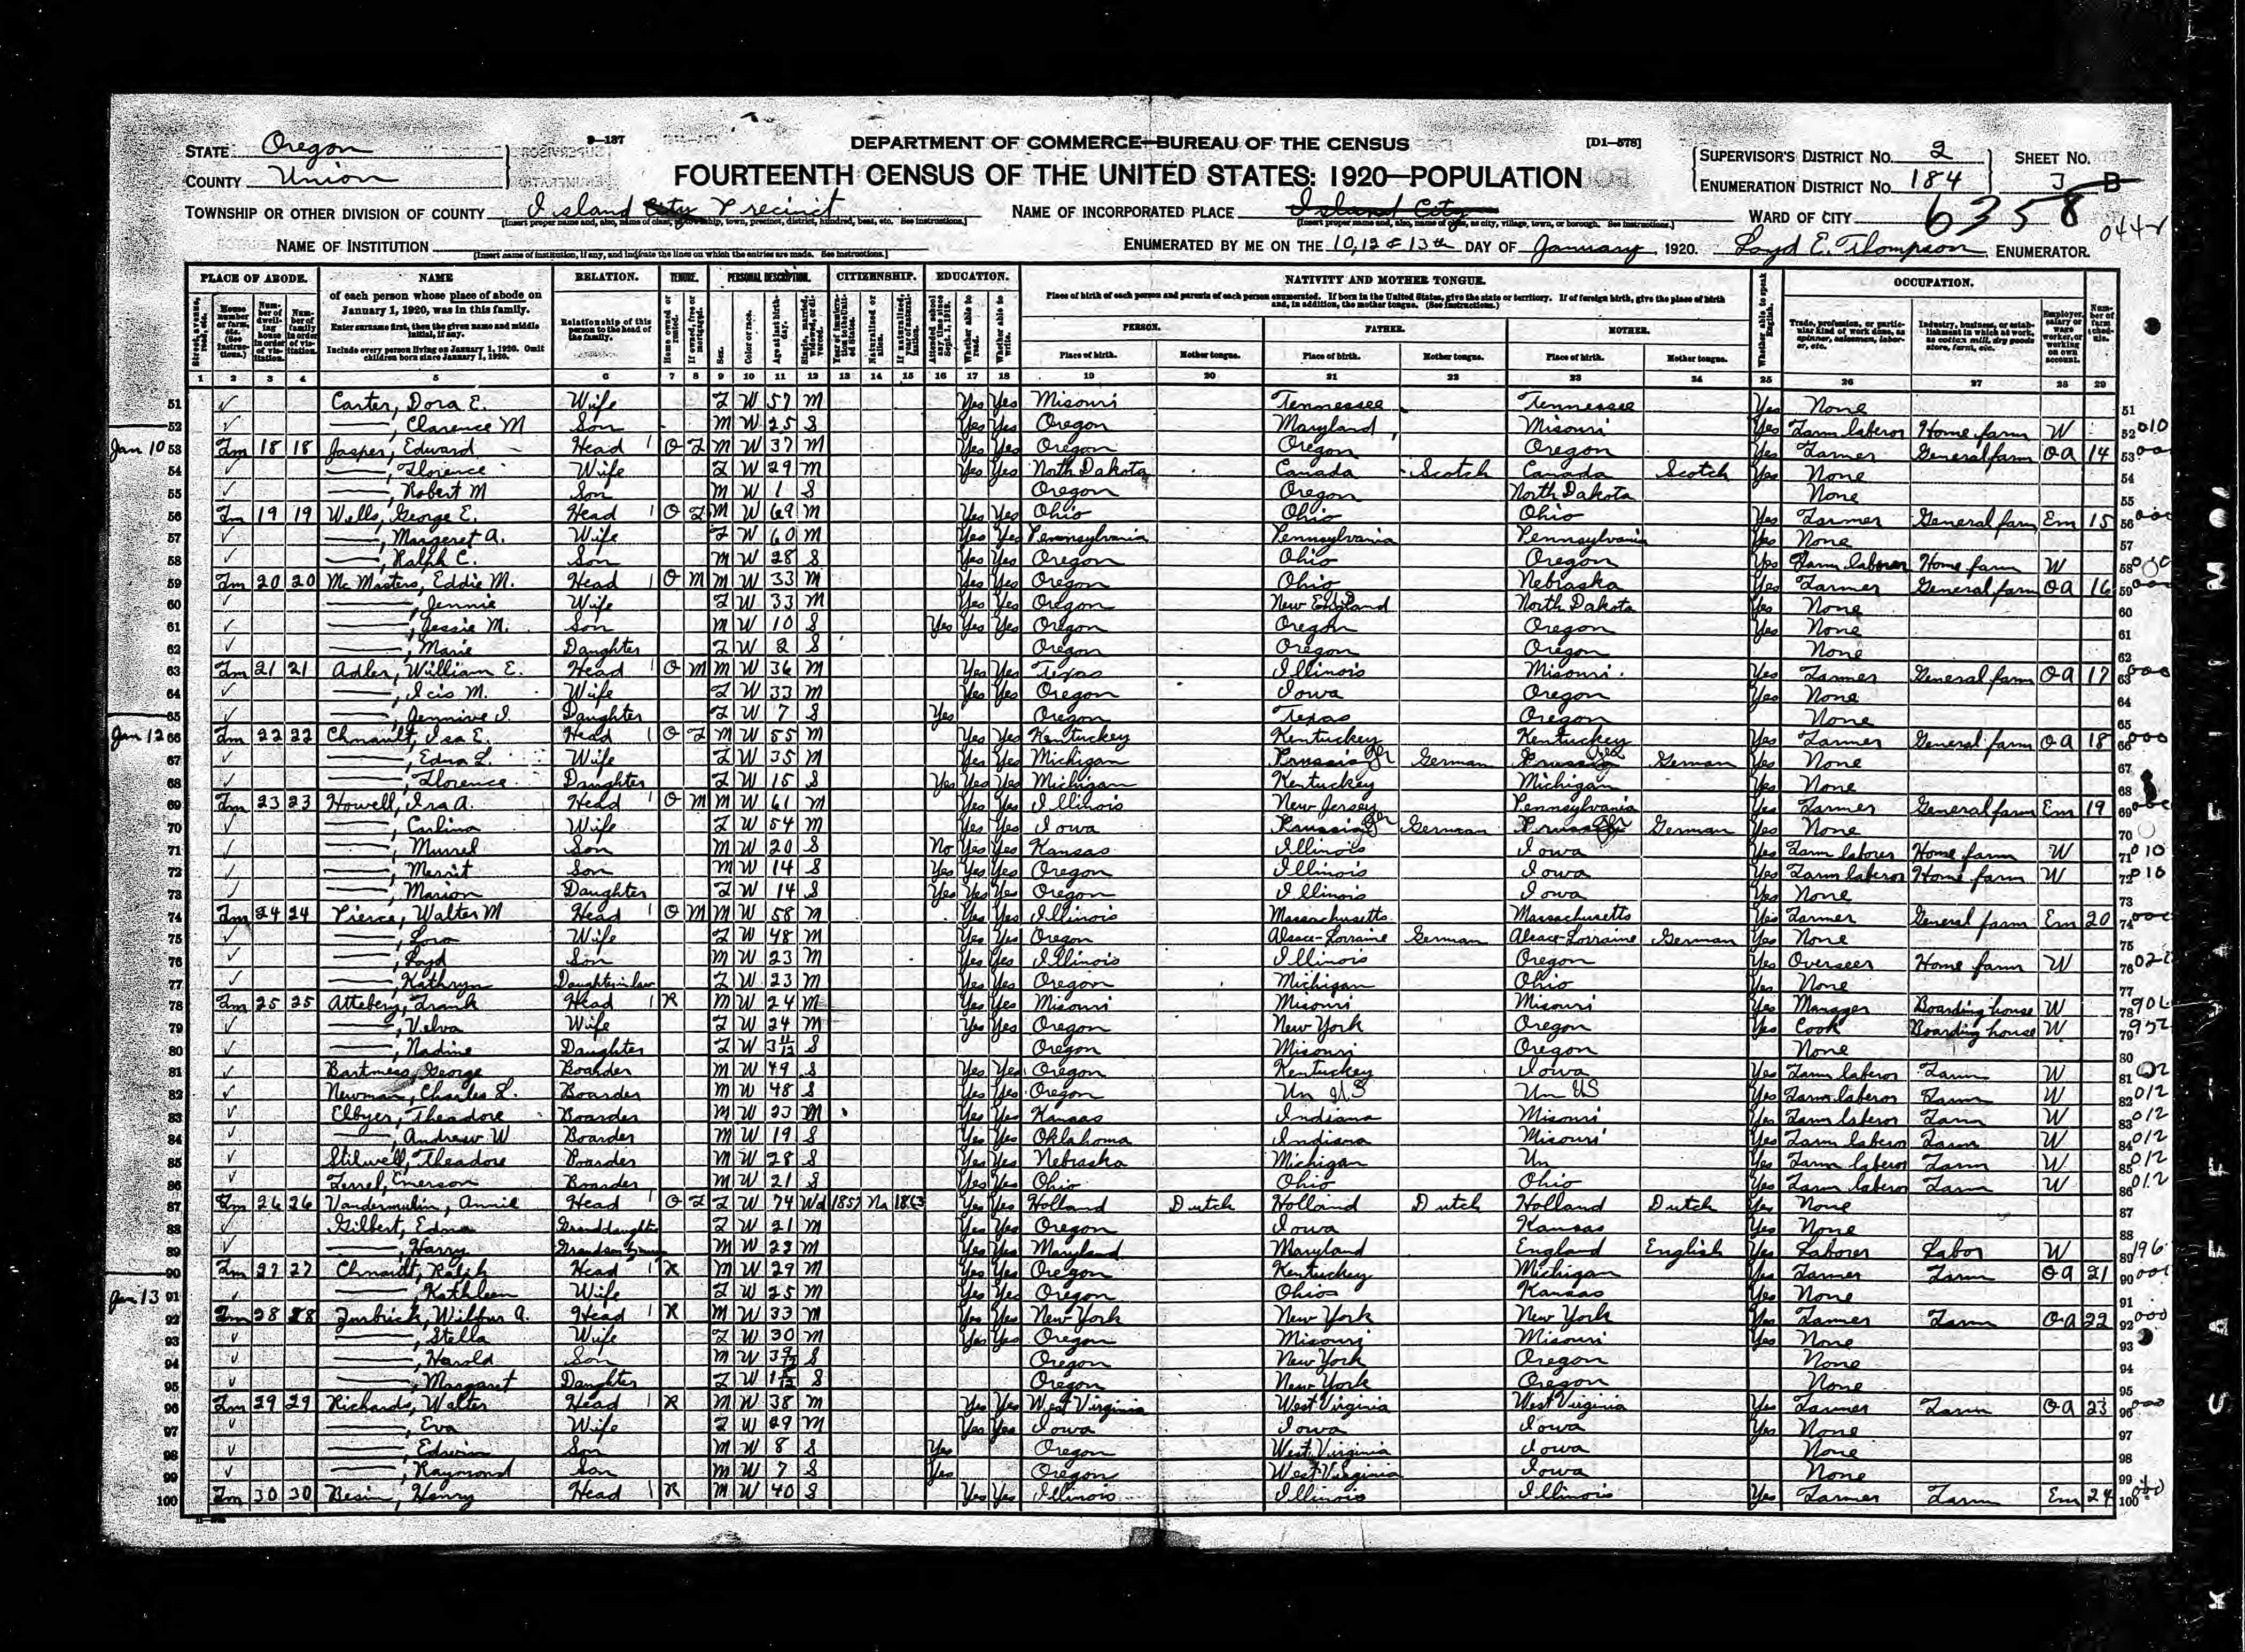 9—137
DEPARTMENT OF COMMERCE—BUREAU OF THE CENSUS
[D1—578]
FOURTEENTH CENSUS OF THE UNITED STATES: 1920—POPULATION
STATE Oregon
COUNTY Union
SUPERVISOR'S DISTRICT No. 2
ENUMERATION DISTRICT No. 184
SHEET No. 3 B
6358
TOWNSHIP OR OTHER DIVISION OF COUNTY Island City Precinct
NAME OF INCORPORATED PLACE Island City
WARD OF CITY
NAME OF INSTITUTION
ENUMERATED BY ME ON THE 10, 12 & 13th DAY OF January, 1920. Loyd E. Thompson, ENUMERATOR.
PLACE OF ABODE. NAME RELATION. TENURE. PERSONAL DESCRIPTION. CITIZENSHIP. EDUCATION. NATIVITY AND MOTHER TONGUE. OCCUPATION.
of each person whose place of abode on January 1, 1920, was in this family.
Enter surname first, then the given name and middle initial, if any.
Include every person living on January 1, 1920. Omit children born since January 1, 1920.
Relationship of this person to the head of the family.
Place of birth of each person and parents of each person enumerated. If born in the United States, give the state or territory. If of foreign birth, give the place of birth and, in addition, the mother tongue. (See Instructions.)
PERSON. FATHER. MOTHER.
Place of birth. Mother tongue. Place of birth. Mother tongue. Place of birth. Mother tongue.
1 2 3 4 5 6 7 8 9 10 11 12 13 14 15 16 17 18 19 20 21 22 23 24 25 26 27 28 29
51 Carter, Dora E. Wife F W 57 M Yes Yes Misouri Tennessee Tennessee Yes None 51
52 ——, Clarence M Son M W 25 S Yes Yes Oregon Maryland Misouri Yes Farm laberor Home farm W 52
Jan 10 53 Fm 18 18 Jasper, Edward Head O F M W 37 M Yes Yes Oregon Oregon Oregon Yes Farmer General farm OA 14 53
54 ——, Florence Wife F W 29 M Yes Yes North Dakota Canada Scotch Canada Scotch Yes None 54
55 ——, Robert M Son M W 1 S Oregon Oregon North Dakota None 55
56 Fm 19 19 Wells, George E. Head O F M W 69 M Yes Yes Ohio Ohio Ohio Yes Farmer General farm Em 15 56
57 ——, Margeret A. Wife F W 60 M Yes Yes Pennsylvania Pennsylvania Pennsylvania Yes None 57
58 ——, Ralph C. Son M W 28 S Yes Yes Oregon Ohio Oregon Yes Farm laberor Home farm W 58
59 Fm 20 20 Mc Masters, Eddie M. Head O M M W 33 M Yes Yes Oregon Ohio Nebraska Yes Farmer General farm OA 16 59
60 ——, Jennie Wife F W 33 M Yes Yes Oregon New England North Dakota Yes None 60
61 ——, Jessie M. Son M W 10 S Yes Yes Yes Oregon Oregon Oregon Yes None 61
62 ——, Marie Daughter F W 2 S Oregon Oregon Oregon None 62
63 Fm 21 21 Adler, William E. Head O M M W 36 M Yes Yes Texas Illinois Misouri Yes Farmer General farm OA 17 63
64 ——, Icis M. Wife F W 33 M Yes Yes Oregon Iowa Oregon Yes None 64
65 ——, Jennive I. Daughter F W 7 S Yes Oregon Texas Oregon None 65
Jan 12 66 Fm 22 22 Chnault, Isa E. Head O F M W 55 M Yes Yes Kentuckey Kentuckey Kentuckey Yes Farmer General farm OA 18 66
67 ——, Edna L. Wife F W 35 M Yes Yes Michigan Prussia German Prussia German Yes None 67
68 ——, Florence Daughter F W 15 S Yes Yes Yes Michigan Kentuckey Michigan Yes None 68
69 Fm 23 23 Howell, Ira A. Head O M M W 61 M Yes Yes Illinois New Jersey Pennsylvania Yes Farmer General farm Em 19 69
70 ——, Carlina Wife F W 54 M Yes Yes Iowa Prussia German Prussia German Yes None 70
71 ——, Murrel Son M W 20 S No Yes Yes Kansas Illinois Iowa Yes Farm laberor Home farm W 71
72 ——, Merrit Son M W 14 S Yes Yes Yes Oregon Illinois Iowa Yes Farm laberor Home farm W 72
73 ——, Marion Daughter F W 14 S Yes Yes Yes Oregon Illinois Iowa Yes None 73
74 Fm 24 24 Pierce, Walter M Head O M M W 58 M Yes Yes Illinois Massachusetts Massachusetts Yes Farmer General farm Em 20 74
75 ——, Lora Wife F W 48 M Yes Yes Oregon Alsace-Lorraine German Alsace-Lorraine German Yes None 75
76 ——, Loyd Son M W 23 M Yes Yes Illinois Illinois Oregon Yes Overseer Home farm W 76
77 ——, Kathryn Daughter in law F W 23 M Yes Yes Oregon Michigan Ohio Yes None 77
78 Fm 25 25 Attebery, Frank Head R M W 24 M Yes Yes Misouri Misouri Misouri Yes Manager Boarding house W 78
79 ——, Velva Wife F W 24 M Yes Yes Oregon New York Oregon Yes Cook Boarding house W 79
80 ——, Nadine Daughter F W 3 11/12 S Oregon Misouri Oregon None 80
81 Bartmess, George Boarder M W 49 S Yes Yes Oregon Kentuckey Iowa Yes Farm laberor Farm W 81
82 Newman, Charles L. Boarder M W 48 S Yes Yes Oregon Un U.S Un US Yes Farm laberor Farm W 82
83 Elbyer, Theadore Boarder M W 23 M Yes Yes Kansas Indiana Misouri Yes Farm laberor Farm W 83
84 ——, Andrew W Boarder M W 19 S Yes Yes Oklahoma Indiana Misouri Yes Farm laberor Farm W 84
85 Stilwell, Theadore Boarder M W 28 S Yes Yes Nebraska Michigan Un Yes Farm laberor Farm W 85
86 Ferrel, Emerson Boarder M W 21 S Yes Yes Ohio Ohio Ohio Yes Farm laberor Farm W 86
87 Fm 26 26 Vandermulin, Annie Head O F F W 74 Wd 1857 Na 1863 Yes Yes Holland Dutch Holland Dutch Holland Dutch Yes None 87
88 Gilbert, Edna Granddaughter F W 21 M Yes Yes Oregon Iowa Kansas Yes None 88
89 ——, Harry M W 23 M Yes Yes Maryland Maryland England English Yes Laborer Labor W 89
90 Fm 27 27 Chnault, Ralph Head R M W 29 M Yes Yes Oregon Kentuckey Michigan Yes Farmer Farm OA 21 90
Jan 13 91 ——, Kathleen Wife F W 25 M Yes Yes Oregon Ohio Kansas Yes None 91
92 Fm 28 28 Zurbrick, Wilbur A. Head R M W 33 M Yes Yes New York New York New York Yes Farmer Farm OA 22 92
93 ——, Stella Wife F W 30 M Yes Yes Oregon Misouri Misouri Yes None 93
94 ——, Harold Son M W 3 9/12 S Oregon New York Oregon None 94
95 ——, Margaret Daughter F W S Oregon New York Oregon None 95
96 Fm 29 29 Richards, Walter Head R M W 38 M Yes Yes West Virginia West Virginia West Virginia Yes Farmer Farm OA 23 96
97 ——, Eva Wife F W 29 M Yes Yes Iowa Iowa Iowa Yes None 97
98 ——, Edwin Son M W 8 S Yes Oregon West Virginia Iowa None 98
99 ——, Raymond Son M W 7 S Yes Oregon West Virginia Iowa None 99
100 Fm 30 30 Henry Head R M W 40 S Yes Yes Illinois Illinois Illinois Yes Farmer Farm Em 24 100